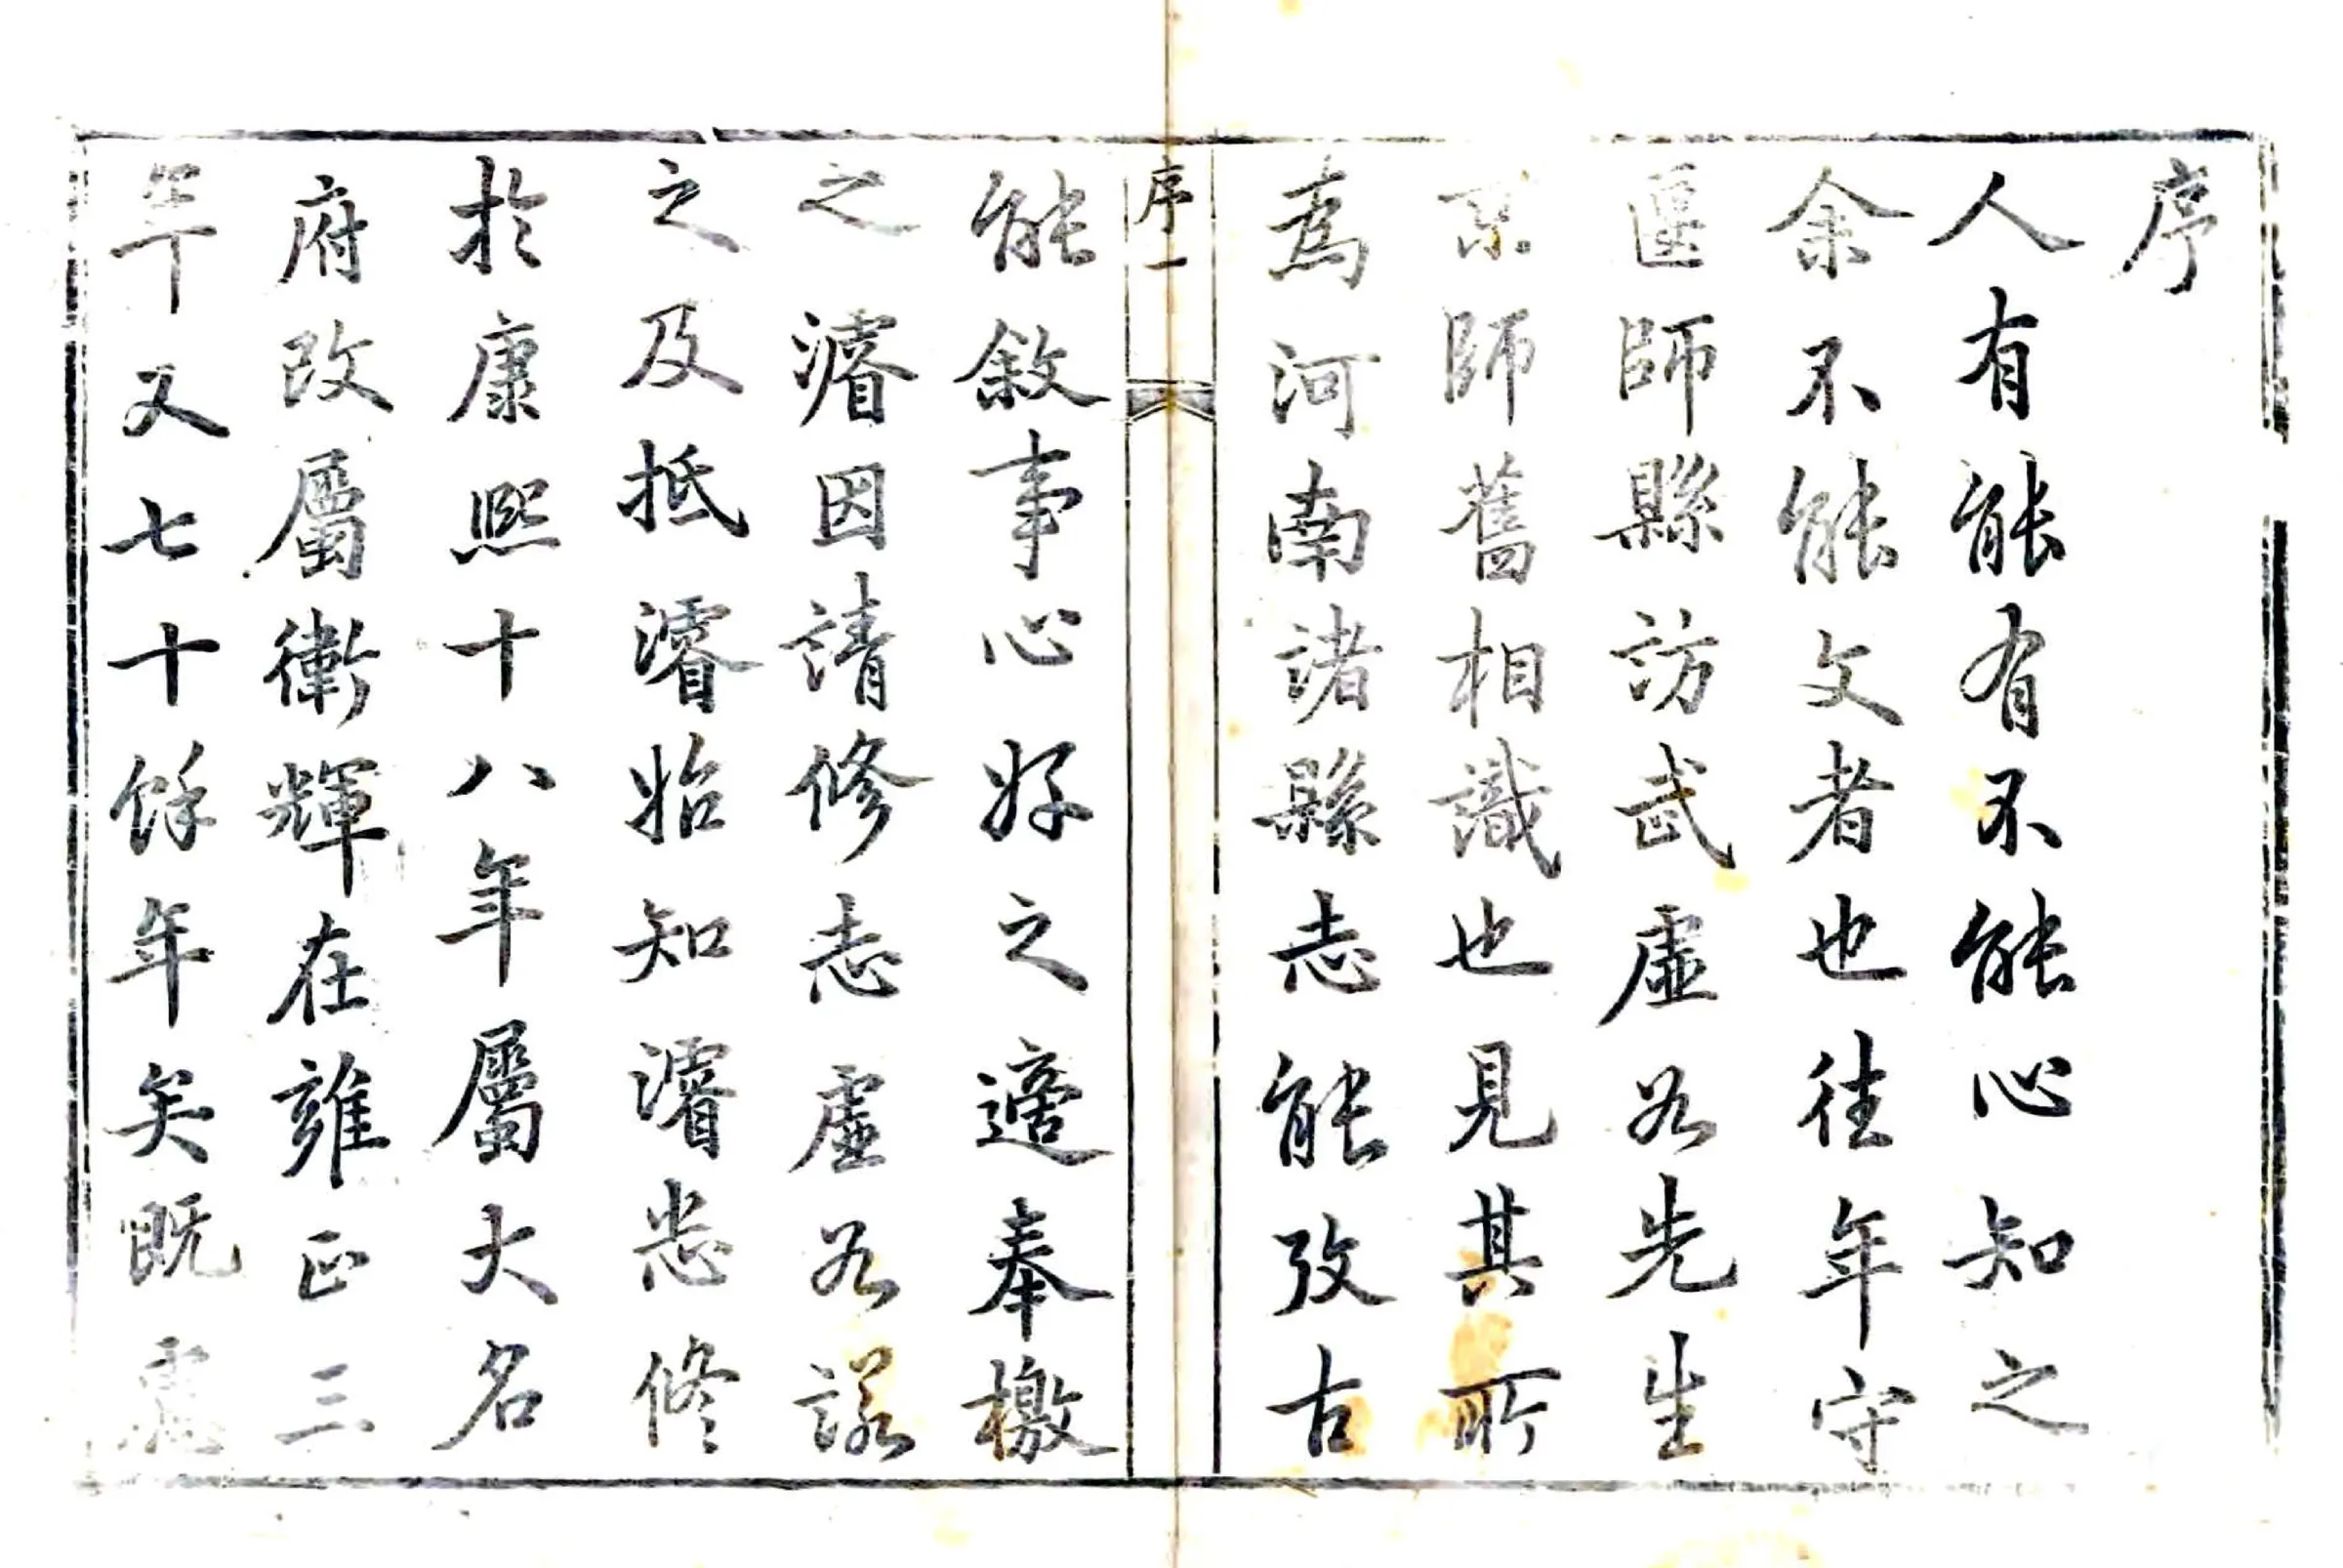 序
人有能有不能心知之
余不能文者也往年守
偃師縣訪武虛谷先生
京師舊相識也見其所
為河南諸縣志能攷古
序一
能敘事心好之適奉檄
之濬因請修志虛谷諾
之及抵濬始知濬志修
於康熙十八年屬大名
府改屬衛輝在雍正三
年又七十餘年矣既慮